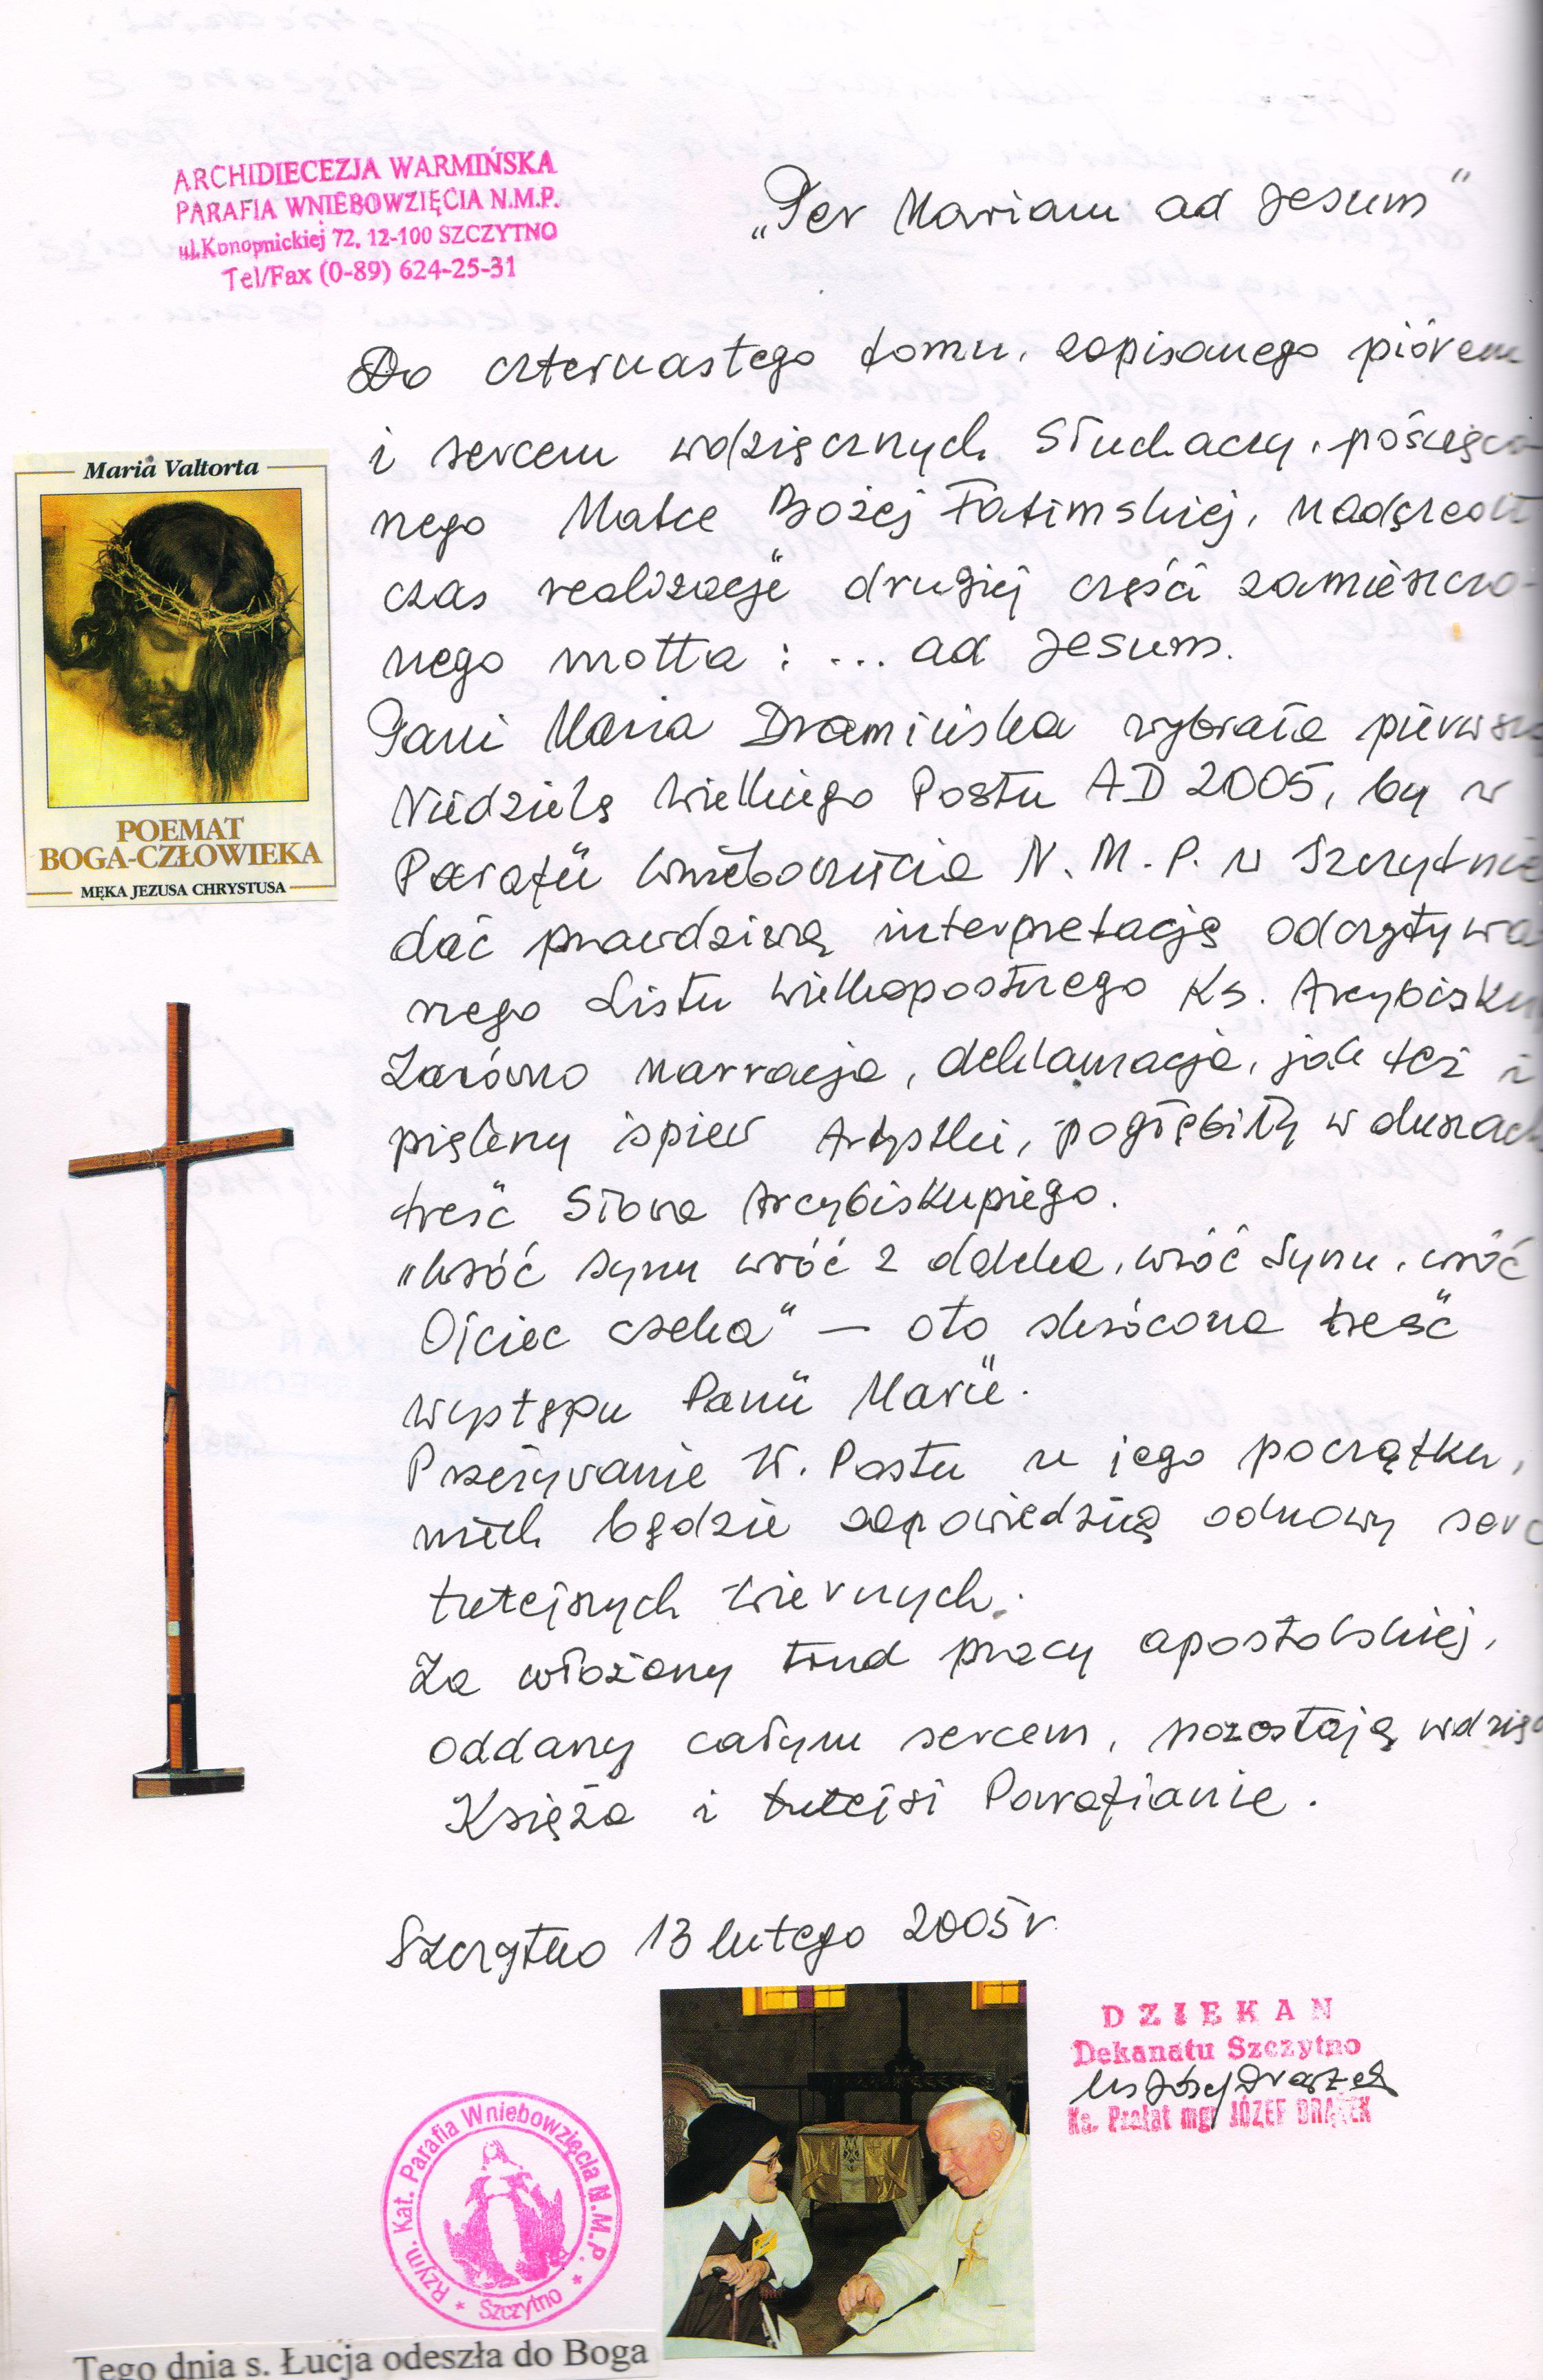 ARCHIDIECEZJA WARMIŃSKA
PARAFIA WNIEBOWZIĘCIA N.M.P.
ul.Konopnickiej 72, 12-100 SZCZYTNO
Tel/Fax (0-89) 624-25-31
„Per Mariam ad Jesum"
Do czternastego tomu, zapisanego piórem
i sercem wdzięcznych Słuchaczy, poświęco-
nego Matce Bożej Fatimskiej, nadszedł
czas realizacji drugiej części zamieszczo-
nego motta : ... ad Jesum.
Pani Maria Dramińska wybrała pierwszą
Niedzielę Wielkiego Postu AD 2005, by w
Parafii Wniebowzięcia N. M. P. w Szczytnie
dać prawdziwą interpretację odczytywa
nego Listu Wielkopostnego Ks. Arcybisku
Zarówno narracja, deklamacja, jak też i
piękny śpiew Artystki, pogłębiły w duszach
treść Słowa Arcybiskupiego.
„Wróć synu wróć z daleka, wróć synu, wróć
Ojciec czeka" — oto skrócona treść
występu Pani Marii.
Przeżywanie W. Postu w jego początku,
niech będzie zapowiedzią odnowy serc
tutejszych Wiernych.
Za włożony trud pracy apostolskiej,
oddany całym sercem, pozostają wdzięc
Księża i tutejsi Parafianie.
Szczytno 13 lutego 2005 r.
Maria Valtorta
POEMAT
BOGA-CZŁOWIEKA
MĘKA JEZUSA CHRYSTUSA
DZIEKAN
Dekanatu Szczytno
ks Józef Drążek
Ks. Prałat mgr JÓZEF DRĄŻEK
Rzym. Kat. Parafia Wniebowzięcia N.M.P. * Szczytno *
Tego dnia s. Łucja odeszła do Boga